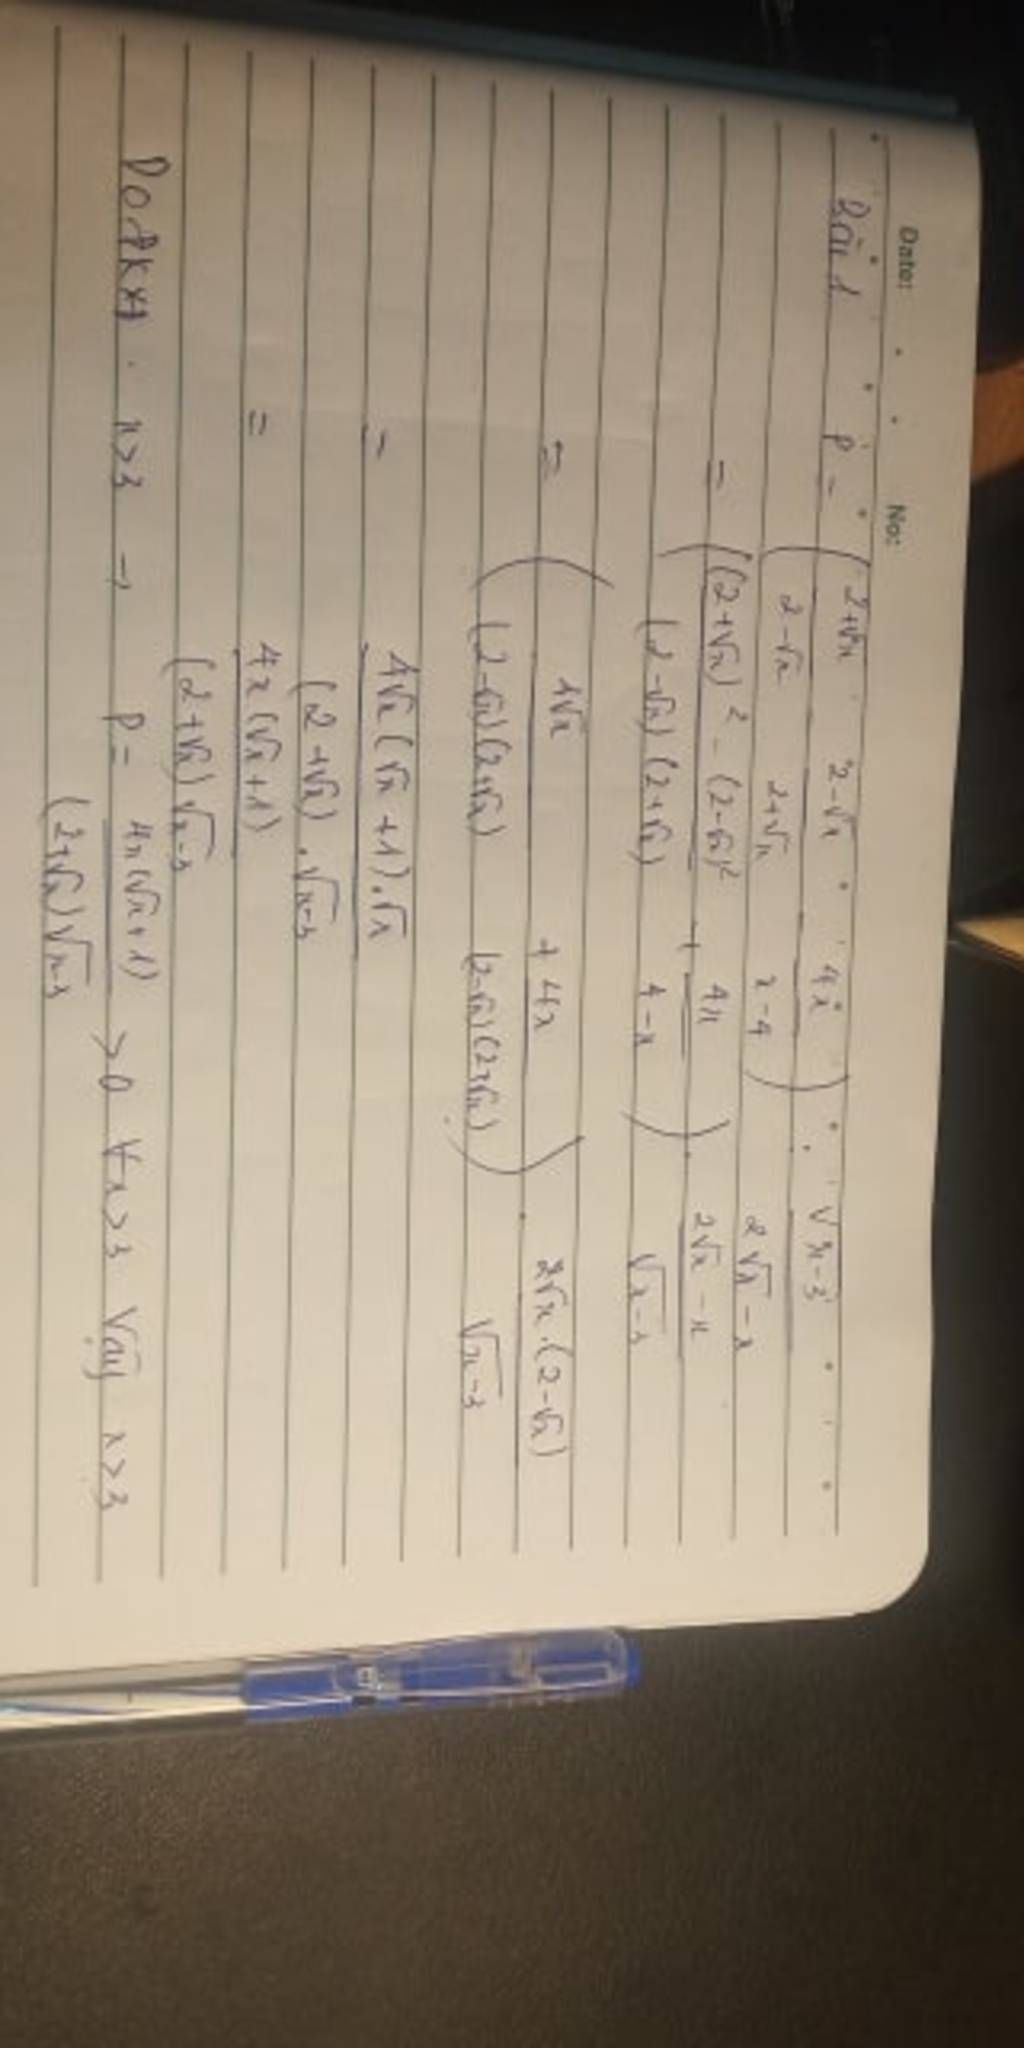 Date: No:
Bài 1 P = ( 2+√x / 2-√x 2-√x / 2+√x 4x / x-4 ) : √x-3 / 2√x-x
= ( (2+√x)² - (2-√x)² / (2-√x)(2+√x) + 4x / 4-x ) . 2√x-x / √x-3
= ( 4√x / (2-√x)(2+√x) + 4x / (2-√x)(2+√x) ) . 2√x.(2-√x) / √x-3
= 4√x(√x+1).√x / (2+√x).√x-3
= 4x(√x+1) / (2+√x)√x-3
x>3 → P = 4x(√x+1) / (2+√x)√x-3 >0 ∀x>3 Vậy x>3